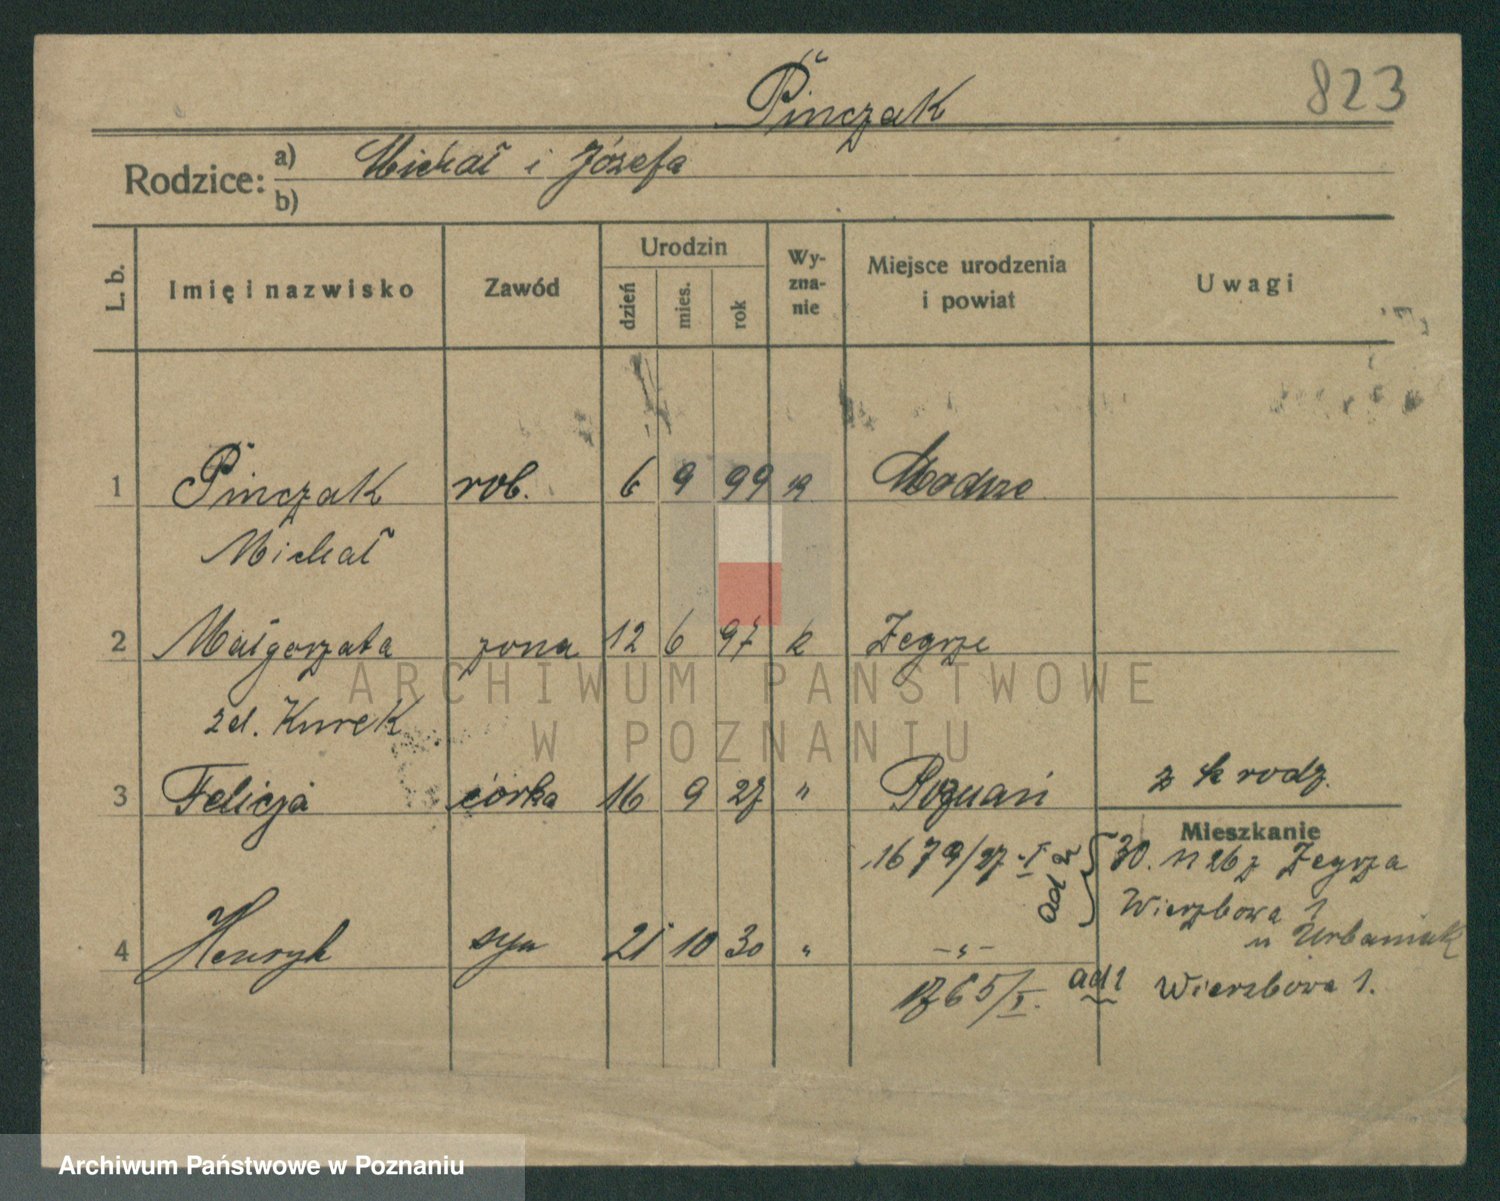 Pinczak
823
Rodzice: a) Michał i Józefa
b)
L. b. Imię i nazwisko Zawód Urodzin dzień mies. rok Wy-zna-nie Miejsce urodzenia i powiat Uwagi
1 Pinczak rob. 6 9 99 Modrze
Michał
2 Małgorzata żona 12 6 97 k Żegrze
ARCHIWUM PAŃSTWOWE
zd. Kurek
W POZNANIU
3 Felicja córka 16 9 27 " Poznań z k rodz.
Mieszkanie
1679/27 I ad 2 30. 11 26 z Żegrza
Wierzbowa 1
u Urbaniak
4 Henryk syn 21 10 30 " -"-
1765/I. ad 1 Wierzbowa 1.
Archiwum Państwowe w Poznaniu